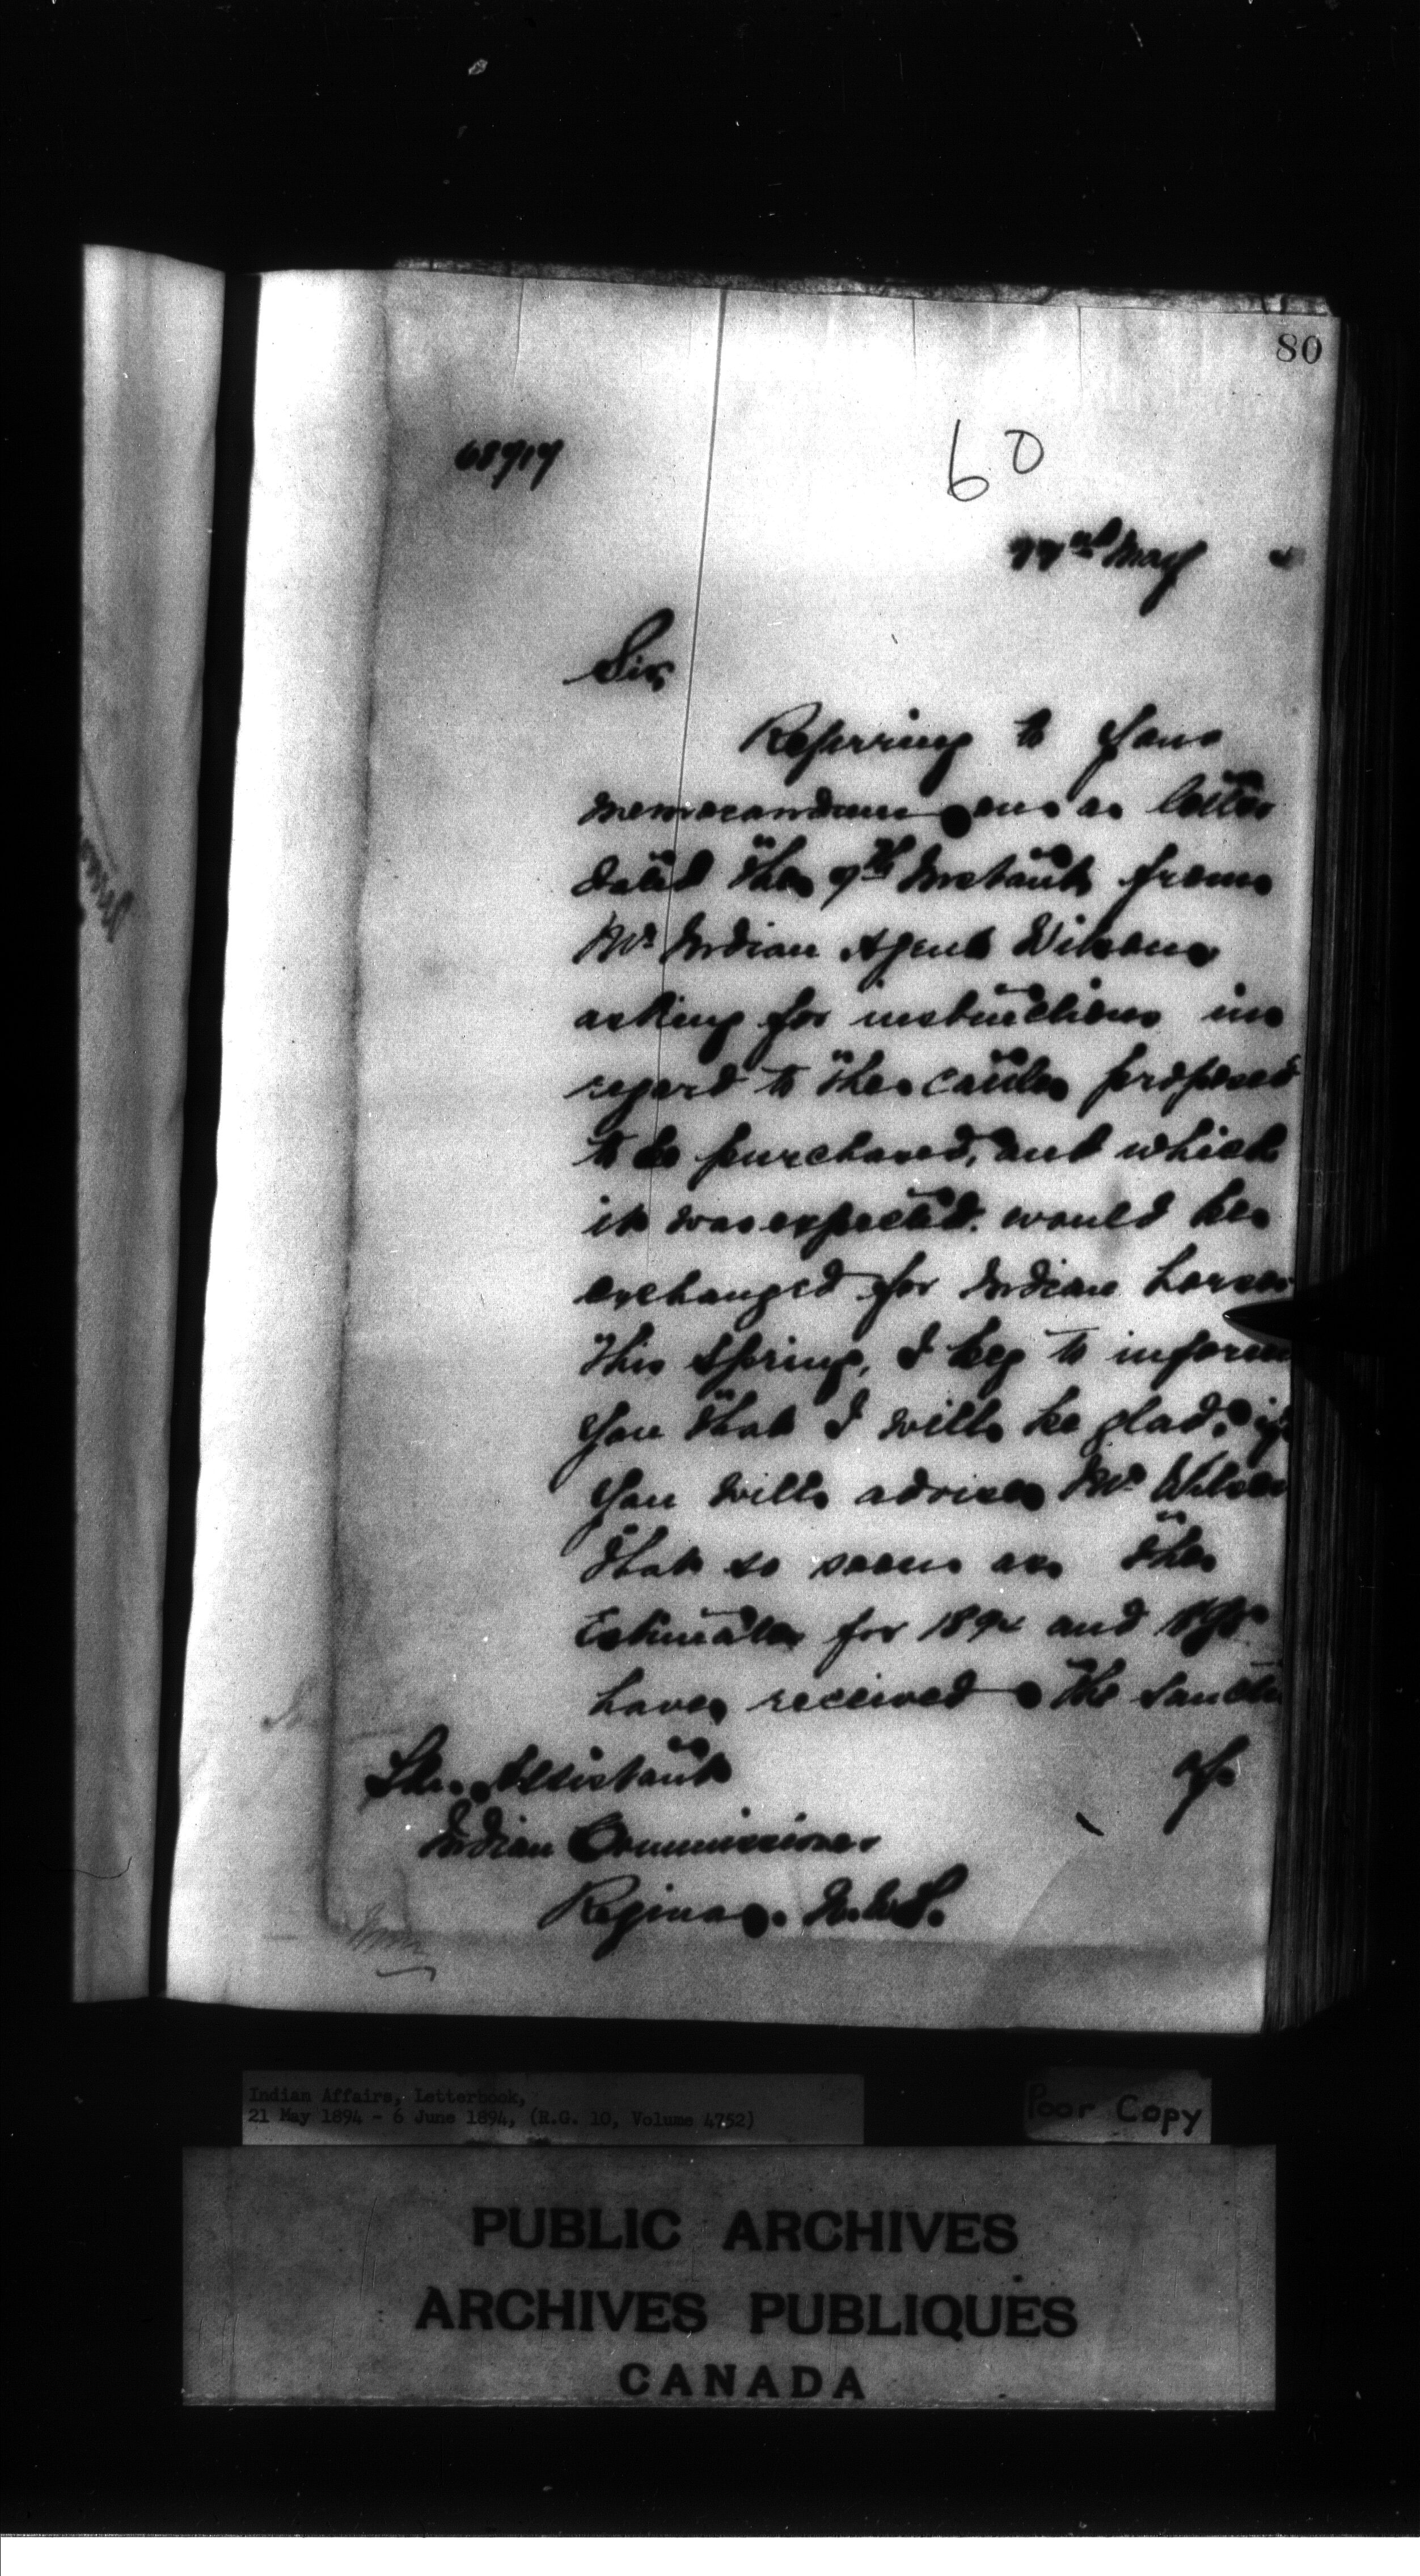 80
60
22nd May
Sir,
Referring to your
memorandum on a letter
dated the 9th Instant from
Mr Indian Agent Wilson
asking for instructions in
regard to the cattle proposed
to be purchased, and which
it was expected would be
exchanged for Indian horses
this Spring, I beg to inform
you that I will be glad, if
you will advise Mr Wilson
that so soon as the
Estimates for 1894 and 1895
have received the sanction
of
The Assistant
Indian Commissioner
Regina. N.W.T.
Indian Affairs, Letterbook,
21 May 1894 - 6 June 1894, (R.G. 10, Volume 4752)
Poor Copy
PUBLIC ARCHIVES
ARCHIVES PUBLIQUES
CANADA